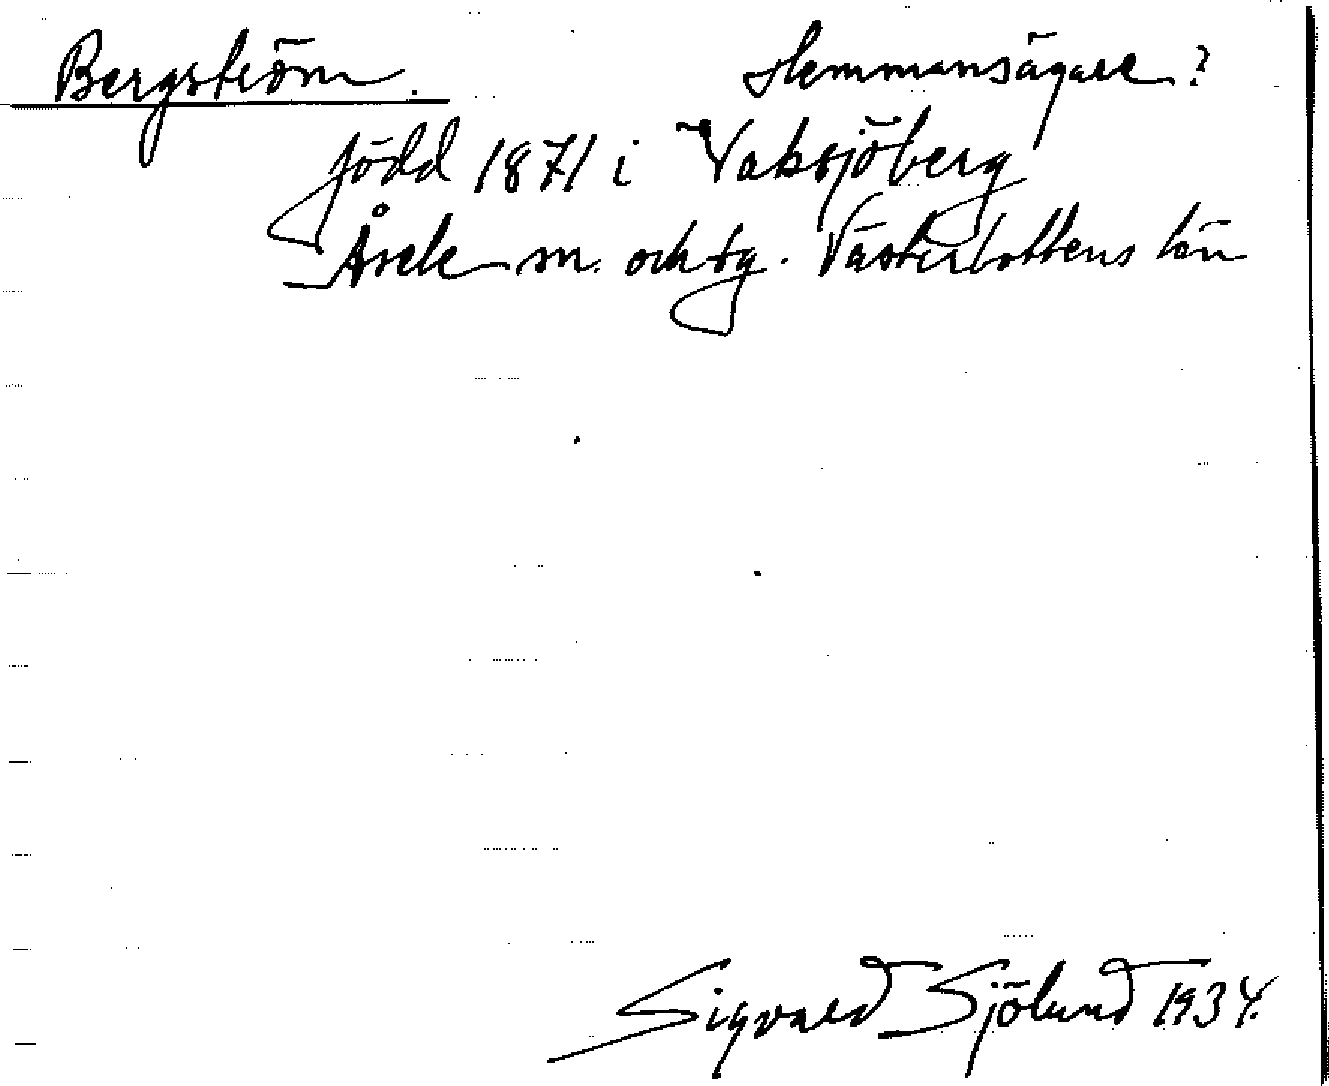 Bergström. Hemmansägare?
född 1871 i Vaksjöberg
Åsele sn. och sg. Västerbottens län
Sigvald Sjölund 1934.